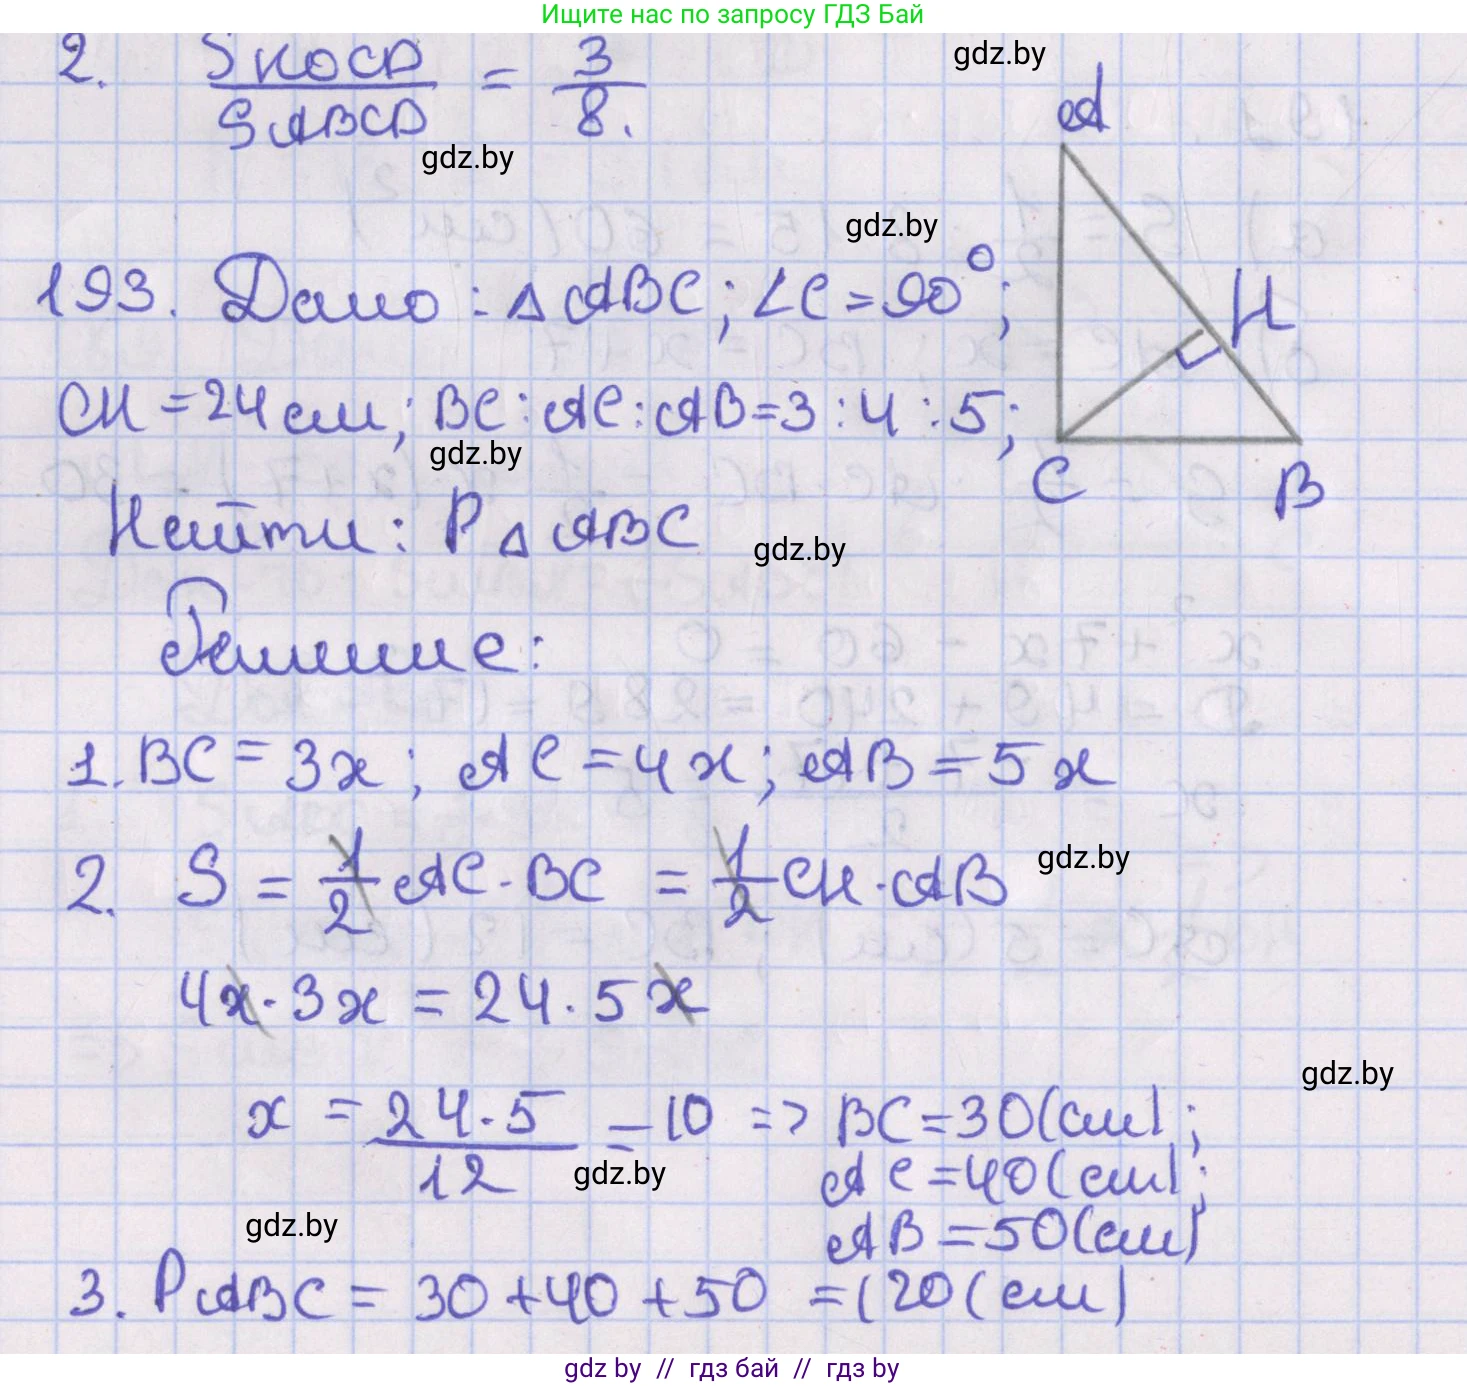 Ищите нас по запросу ГДЗ Бай
2. SKOCD / SABCD = 3 / 8.
gdz.by
gdz.by
A
gdz.by
193. Дано: △ABC; ∠C = 90°;
H
CH = 24 см; BC : AC : AB = 3 : 4 : 5;
gdz.by
C B
Найти: P△ABC
gdz.by
Решение:
1. BC = 3x; AC = 4x; AB = 5x
gdz.by
2. S = 1/2 AC · BC = 1/2 CH · AB
4x · 3x = 24 · 5x
gdz.by
x = 24 · 5 / 12 = 10 => BC = 30 (см);
gdz.by
AC = 40 (см);
gdz.by
AB = 50 (см)
3. PABC = 30 + 40 + 50 = 120 (см)
gdz by // гдз бай // гдз by